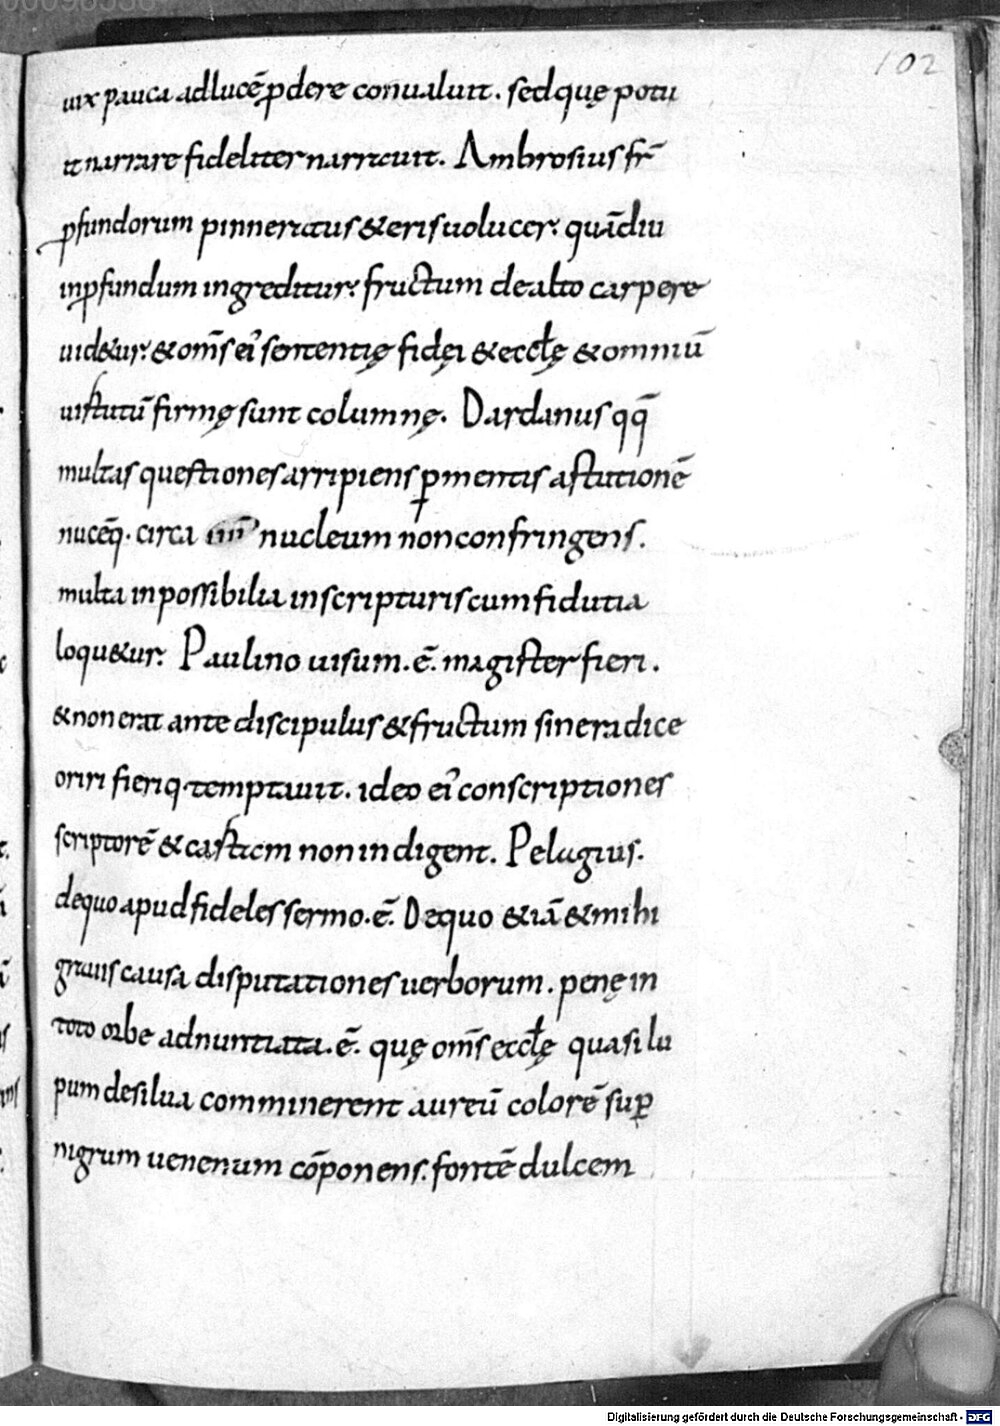 102
uix pauca adlucē pdere conualuit. sedquę potu
it narrare fideliter narrauit. Ambrosius fr̄
pfundorum pinneratus & eris uolucer: quādiu
inpfundum ingreditur: fructum dealto carpere
uid&ur: & om̄s ei' sententię fidęi & eccłę & omniū
uirtutū firmę sunt columnę. Dardanus qq̄
multas questiones arripiens p mentis astutionē
nucēq. circa nucleum nonconfringens.
multa inpossibilia inscripturis cum fidutia
loqu&ur: Paulino uisum. ē. magister fieri.
& non erat ante discipulus & fructum sineradice
oriri fieriq. temptauit. ideo ei' conscriptiones
scriptorē & castiem non indigent. Pelagius.
dequo apud fideles sermo. ē. Dequo & iā & mihi
grauis causa disputationes uerborum. penę in
toto orbe adnuntiata. ē. quę om̄s eccłę quasi lu
pum desilua comminerent aureū colorē sup
nigrum uenenum cōponens. fontē dulcem
Digitalisierung gefördert durch die Deutsche Forschungsgemeinschaft - DFG